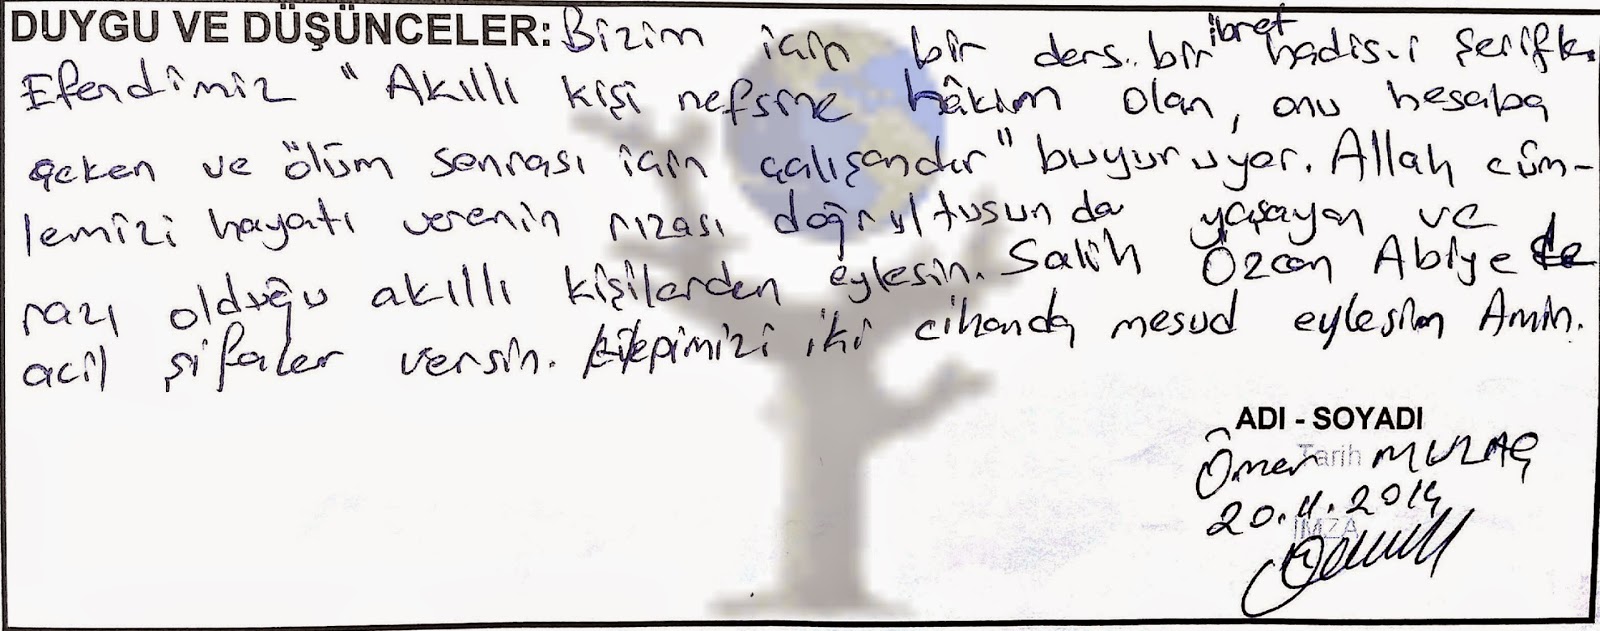 DUYGU VE DÜŞÜNCELER: Bizim için bir ders.. bir ibret hadis-i şerifte
Efendimiz "Akıllı kişi nefsine hâkim olan, onu hesaba
çeken ve ölüm sonrası için çalışandır" buyuruyor. Allah cüm-
lemizi hayatı verenin rızası doğrultusunda yaşayan ve
razı olduğu akıllı kişilerden eylesin. Salih Özcan Abiye de
acil şifalar versin. hepimizi iki cihanda mesud eylesin Amin.
ADI - SOYADI
Tarih
Ömer MULAÇ
20.11.2014
İMZA